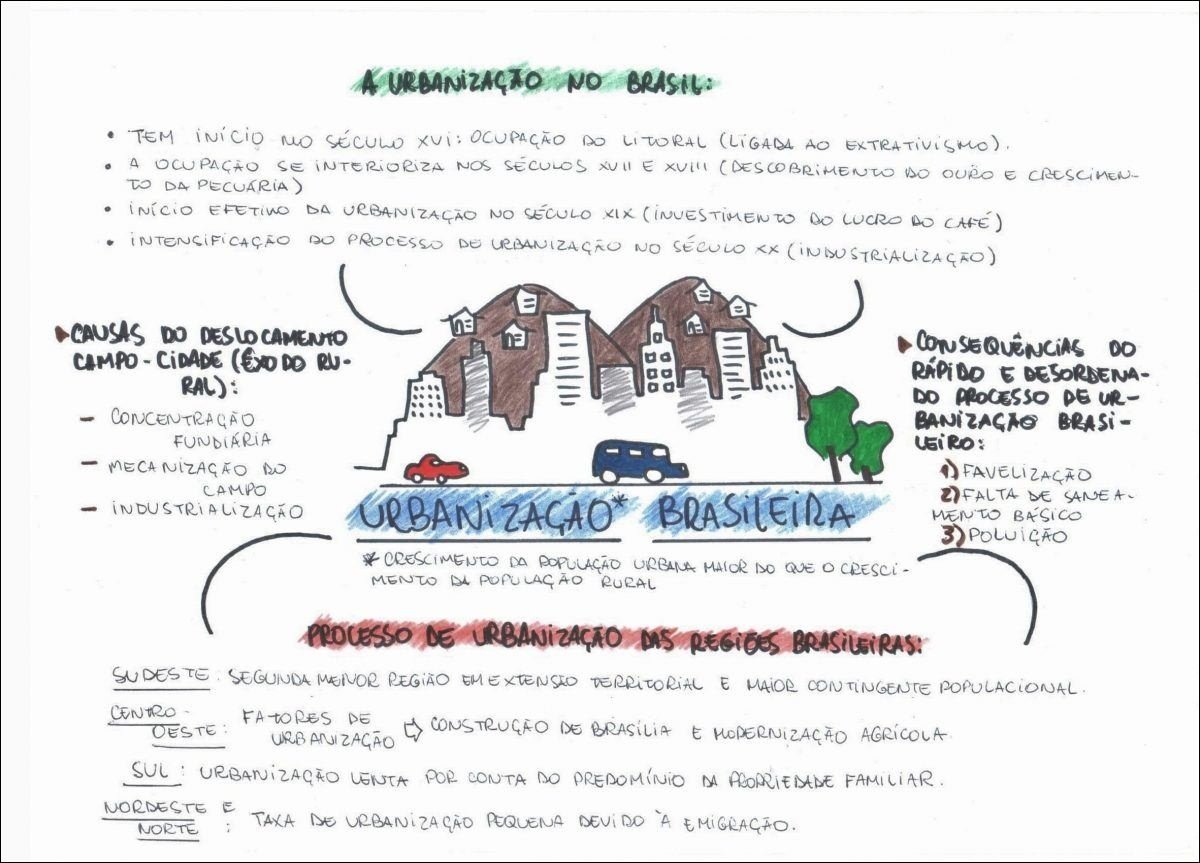 A URBANIZAÇÃO NO BRASIL:
• TEM INÍCIO NO SÉCULO XVI: OCUPAÇÃO DO LITORAL (LIGADA AO EXTRATIVISMO).
• A OCUPAÇÃO SE INTERIORIZA NOS SÉCULOS XVII E XVIII (DESCOBRIMENTO DO OURO E CRESCIMEN-
TO DA PECUÁRIA)
• INÍCIO EFETIVO DA URBANIZAÇÃO NO SÉCULO XIX (INVESTIMENTO DO LUCRO DO CAFÉ)
• INTENSIFICAÇÃO DO PROCESSO DE URBANIZAÇÃO NO SÉCULO XX (INDUSTRIALIZAÇÃO)
CAUSAS DO DESLOCAMENTO
CAMPO-CIDADE (ÊXODO RU-
RAL):
- CONCENTRAÇÃO
FUNDIÁRIA
- MECANIZAÇÃO DO
CAMPO
- INDUSTRIALIZAÇÃO
CONSEQUÊNCIAS DO
RÁPIDO E DESORDENA-
DO PROCESSO DE UR-
BANIZAÇÃO BRASI-
LEIRO:
1) FAVELIZAÇÃO
2) FALTA DE SANEA-
MENTO BÁSICO
3) POLUIÇÃO
URBANIZAÇÃO* BRASILEIRA
* CRESCIMENTO DA POPULAÇÃO URBANA MAIOR DO QUE O CRESCI-
MENTO DA POPULAÇÃO RURAL
PROCESSO DE URBANIZAÇÃO DAS REGIÕES BRASILEIRAS:
SUDESTE: SEGUNDA MENOR REGIÃO EM EXTENSÃO TERRITORIAL E MAIOR CONTINGENTE POPULACIONAL.
CENTRO-
OESTE: FATORES DE
URBANIZAÇÃO ⇨ CONSTRUÇÃO DE BRASÍLIA E MODERNIZAÇÃO AGRÍCOLA
SUL: URBANIZAÇÃO LENTA POR CONTA DO PREDOMÍNIO DA PROPRIEDADE FAMILIAR.
NORDESTE E
NORTE: TAXA DE URBANIZAÇÃO PEQUENA DEVIDO À EMIGRAÇÃO.